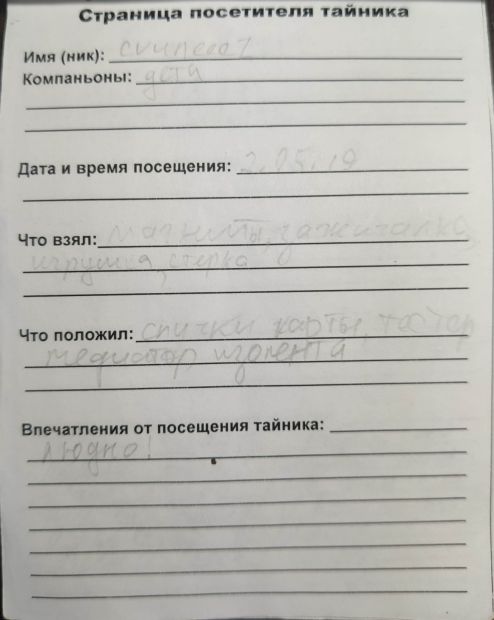 Страница посетителя тайника
Имя (ник):
Компаньоны: дети
Дата и время посещения: 2.05.19
Что взял: магниты, зажигалка,
игрушка, стерка
Что положил: спички карты, тестер
медиатор изолента
Впечатления от посещения тайника:
Людно!